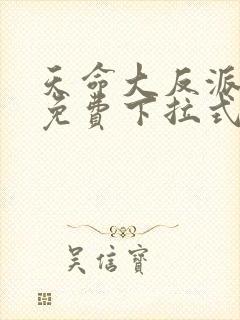 天命大反派
免费下拉式
吴信寳